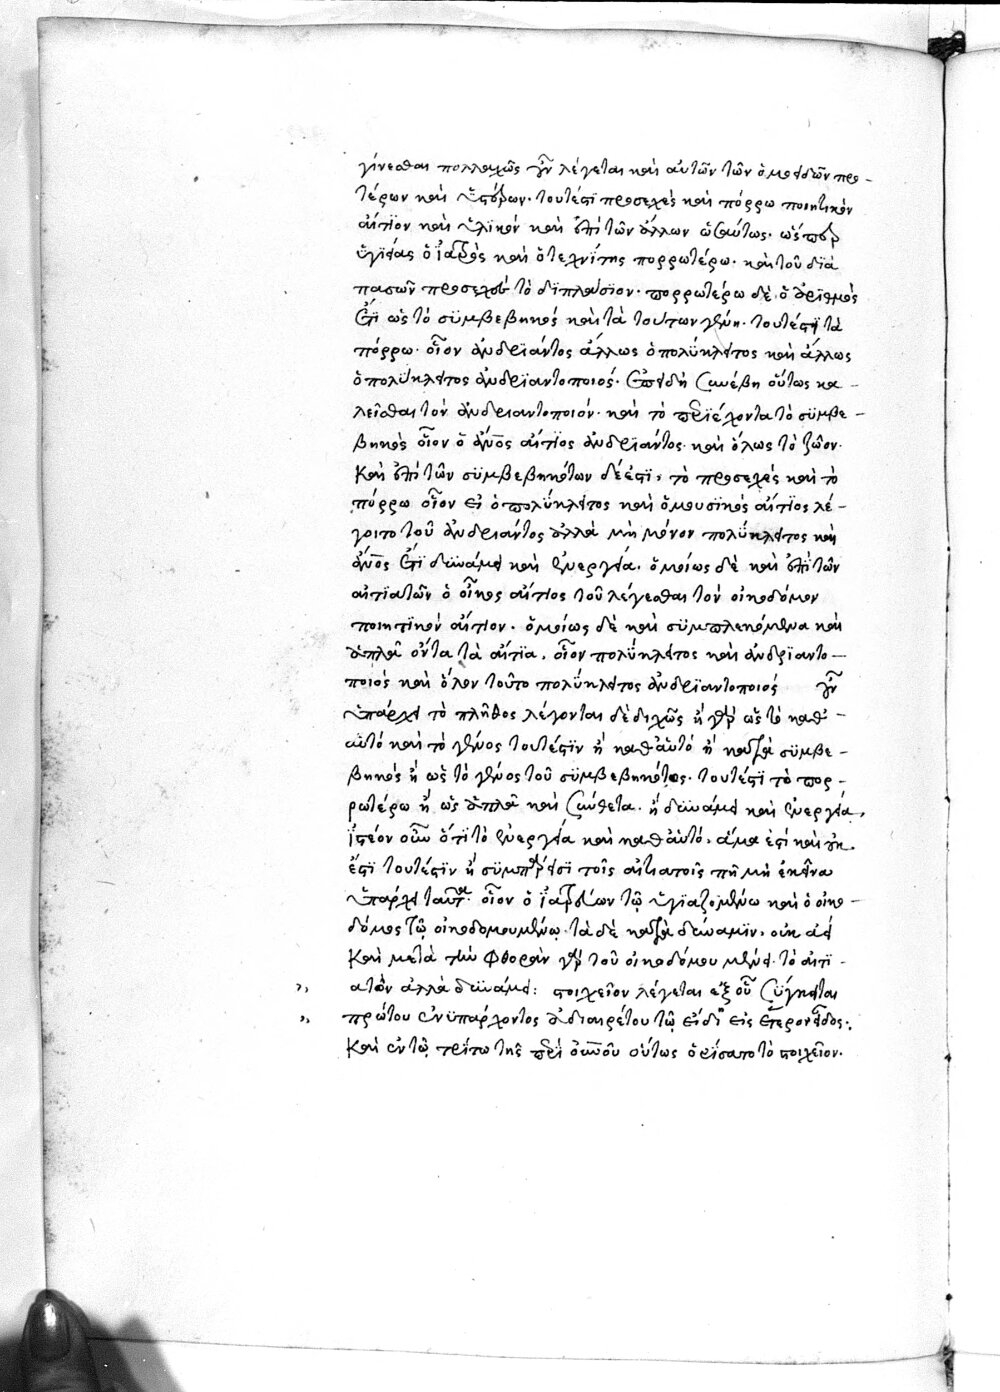 γίνεσθαι πολλαχῶς γὰρ λέγεται καὶ αὐτῶν τῶν ὁμοειδῶν προ-
τέρων καὶ ὑστέρων. τουτέστι προσεχὲς καὶ πόρρω ποιητικὸν
αἴτιον καὶ ὑλικὸν καὶ ἐπὶ τῶν ἄλλων ὡσαύτως. ὥσπερ
ὑγιείας ὁ ἰατρὸς καὶ ὁ τεχνίτης πορρωτέρω. καὶ τοῦ διὰ
πασῶν προσεχὲς τὸ διπλάσιον. πορρωτέρω δὲ ὁ ἀριθμός
ἔτι ὡς τὸ συμβεβηκὸς καὶ τὰ τούτων γένη. τουτέστι τὰ
πόρρω. οἷον ἀνδριάντος ἄλλως ὁ πολύκλειτος καὶ ἄλλως
ὁ πολύκλειτος ἀνδριαντοποιός. ἐπειδὴ συνέβη οὕτως κα-
λεῖσθαι τὸν ἀνδριαντοποιόν. καὶ τὸ περιέχοντα τὸ συμβε-
βηκὸς οἷον ὁ ἄνος αἴτιος ἀνδριάντος. καὶ ὅλως τὸ ζῶον.
καὶ ἐπὶ τῶν συμβεβηκότων δέ ἐστι, τὸ προσεχὲς καὶ τὸ
πόρρω οἷον εἰ ὁ πολύκλειτος καὶ ὁ μουσικὸς αἴτιος λέ-
γοιτο τοῦ ἀνδριάντος ἀλλὰ μὴ μόνον πολύκλειτος καὶ
ἄνος ἔτι δυνάμει καὶ ἐνεργεία. ὁμοίως δὲ καὶ ἐπὶ τῶν
αἰτιατῶν ὁ οἶκος αἴτιος τοῦ λέγεσθαι τὸν οἰκοδόμον
ποιητικὸν αἴτιον. ὁμοίως δὲ καὶ συμπλεκόμενα καὶ
ἁπλᾶ ὄντα τὰ αἴτια. οἷον πολύκλειτος καὶ ἀνδριαντο-
ποιὸς καὶ ὅλον τοῦτο πολύκλειτος ἀνδριαντοποιός γὰρ
ὑπάρχει τὸ πλῆθος λέγονται δὲ διχῶς ἢ γὰρ ὡς τὸ καθ-
αὑτὸ καὶ τὸ γένος τουτέστιν ἢ καθ' αὑτὸ ἢ κατὰ συμβε-
βηκὸς ἢ ὡς τὸ γένος τοῦ συμβεβηκότος. τουτέστι τὸ πορ-
ρωτέρω ἢ ὡς ἁπλᾶ καὶ σύνθετα. ἢ δυνάμει καὶ ἐνεργεία.
ἰστέον οὖν ὅτι τὸ ἐνεργεία καὶ καθ' αὑτό. ἅμα ἐστὶ καὶ οὐκ
ἔστι τουτέστιν ἢ συμπάρεστι τοῖς αἰτιατοῖς πῇ μὴ ἐκεῖνα
ὑπάρχει ταῦτα. οἷον ὁ ἰατρεύων τῷ ὑγιαζομένω καὶ ὁ οἰκο-
δόμος τῷ οἰκοδομουμένῳ. τὰ δὲ κατὰ δύναμιν, οὐκ ἀεί
καὶ μετὰ τὴν φθορὰν γὰρ τοῦ οἰκοδόμου μένει. τὸ αἰτι-
ατὸν ἀλλὰ δυνάμει: στοιχεῖον λέγεται ἐξ οὗ σύγκειται
πρώτου ἐνυπάρχοντος ἀδιαιρέτου τῷ εἴδει εἰς ἕτερον εἶδος:.
καὶ ἐν τῷ τρίτω τῆς περὶ οὐνοῦ οὕτως ὁρίσατο τὸ στοιχεῖον.